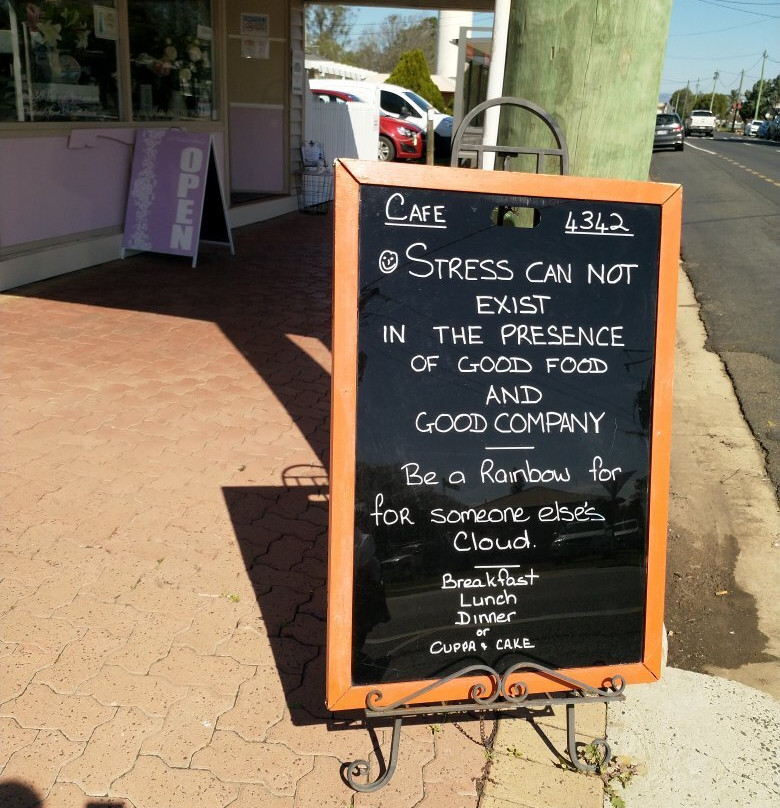 OPEN
CAFE 4342
STRESS CAN NOT
EXIST
IN THE PRESENCE
OF GOOD FOOD
AND
GOOD COMPANY
Be a Rainbow for
for someone else's
Cloud.
Breakfast
Lunch
Dinner
or
CUPPA & CAKE